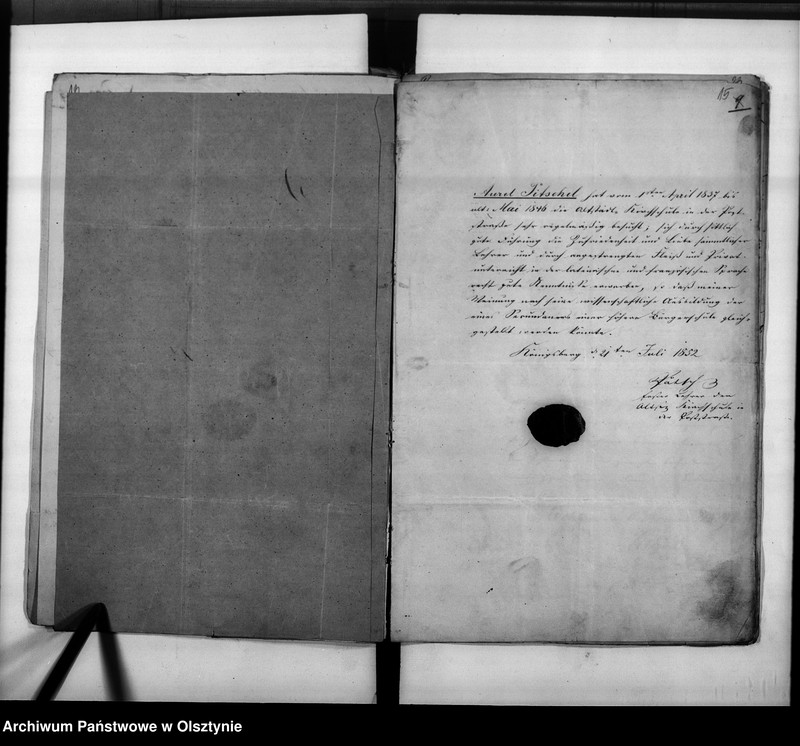 15.
9.
Aurel Titschel hat vom 1sten April 1837 bis
ult. Mai 1846 die Altstädt. Kirchschule in der Post-
straße sehr regelmäßig besucht, sich durch sittlich
gute Führung die Zufriedenheit und Liebe sämmtlicher
Lehrer und durch angestrengten Fleiß und Privat-
unterricht in der lateinischen und französischen Sprache
recht gute Kenntnisse erworben, so daß meiner
Meinung nach seine wissenschaftliche Ausbildung der
eines Secundaners einer höhern Bürgerschule gleich
gestellt werden könnte.
Königsberg d. 21ten Juli 1852
erster Lehrer der
Altst. Kirchschule in
der Poststraße.
Archiwum Państwowe w Olsztynie